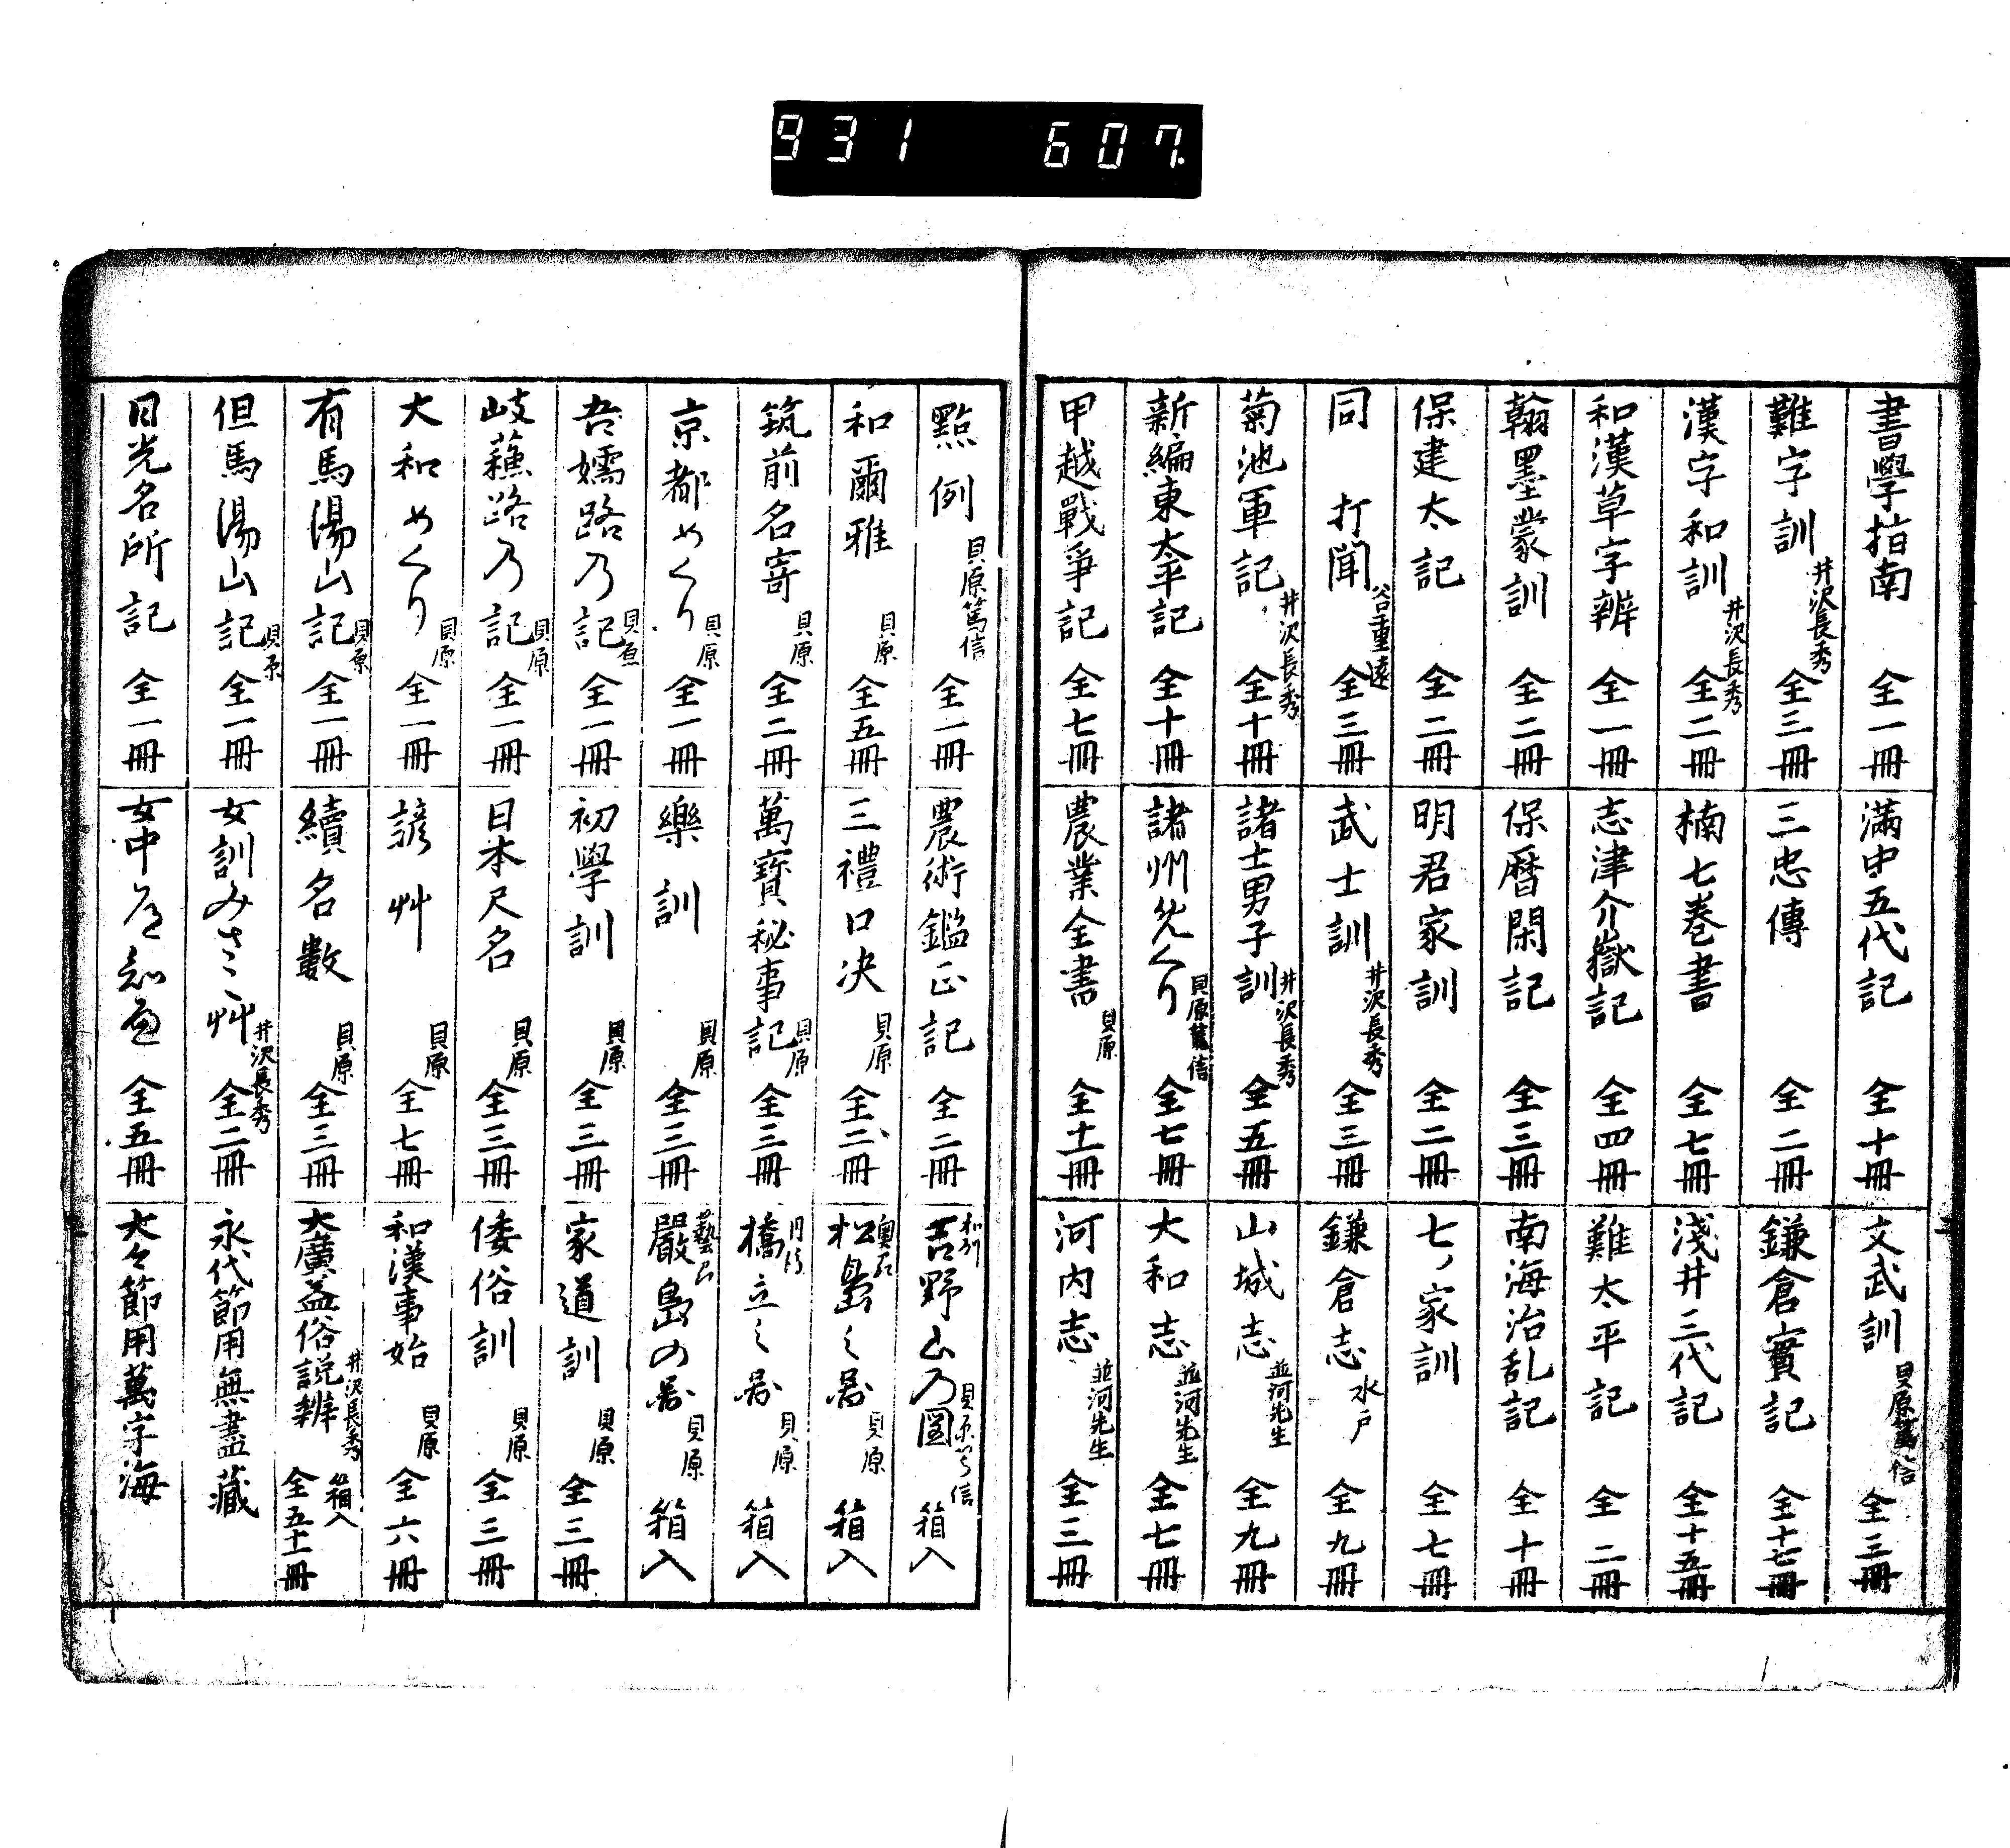 931 607.
書學指南 全一冊
難字訓 井沢長秀 全三冊
漢字和訓 井沢長秀 全二冊
和漢草字辨 全一冊
翰墨蒙訓 全二冊
保建太記 全二冊
同 打聞 谷重遠 全三冊
菊池軍記 井沢長秀 全十冊
新編東太平記 全十冊
甲越戰爭記 全七冊
滿中五代記 全十冊
三忠傳 全二冊
楠七巻書 全七冊
志津介嶽記 全四冊
保暦閑記 全三冊
明君家訓 全二冊
武士訓 井沢長秀 全三冊
諸士男子訓 井沢長秀 全五冊
諸州めくり 貝原篤信 全七冊
農業全書 貝原 全十一冊
文武訓 貝原篤信 全三冊
鎌倉實記 全十七冊
淺井三代記 全十五冊
難太平記 全二冊
南海治乱記 全十冊
七ノ家訓 全七冊
鎌倉志 水戸 全九冊
山城志 並河先生 全九冊
大和志 並河先生 全七冊
河内志 並河先生 全三冊
點例 貝原篤信 全一冊
和爾雅 貝原 全五冊
筑前名寄 貝原 全二冊
京都めくり 貝原 全一冊
吾嬬路乃記 貝原 全一冊
岐蘓路乃記 貝原 全一冊
大和めくり 貝原 全一冊
有馬湯山記 貝原 全一冊
但馬湯山記 貝原 全一冊
日光名所記 全一冊
農術鑑正記 全二冊
三禮口决 貝原 全二冊
萬寳秘事記 貝原 全三冊
樂訓 貝原 全三冊
初學訓 貝原 全三冊
日本尺名 貝原 全三冊
諺艸 貝原 全七冊
續名數 貝原 全三冊
女訓みさこ艸 井沢長秀 全二冊
女中道知辺 全五冊
和州 吉野山乃圖 貝原篤信 箱入
奥州 松島之圖 貝原 箱入
丹後 橋立之圖 貝原 箱入
藝州 嚴島の圖 貝原 箱入
家道訓 貝原 全三冊
倭俗訓 貝原 全三冊
和漢事始 貝原 全六冊
大廣益俗説辨 井沢長秀 箱入 全五十一冊
永代節用無盡藏
大々節用萬字海